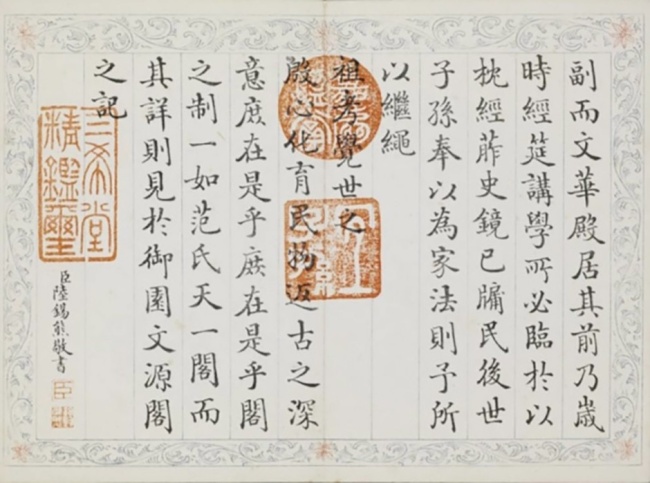 副而文華殿居其前乃歲
時經筵講學所必臨於以
枕經葄史鏡己牖民後世
子孫奉以為家法則予所
以繼繩
祖考覺世之
殷心化育民物返古之深
意庶在是乎庶在是乎閣
之制一如范氏天一閣而
其詳則見於御園文源閣
之記
臣陸錫熊敬書
三希堂
精鑑璽
臣